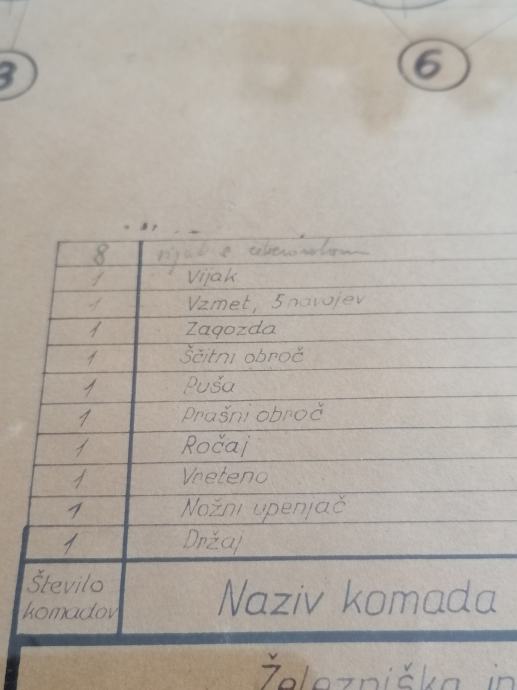 3 6
8 vijak z
1 Vijak
1 Vzmet, 5 navojev
1 Zagozda
1 Ščitni obroč
1 Puša
1 Prašni obroč
1 Ročaj
1 Vreteno
1 Nožni upenjač
1 Držaj
Število komadov Naziv komada
Železniška in